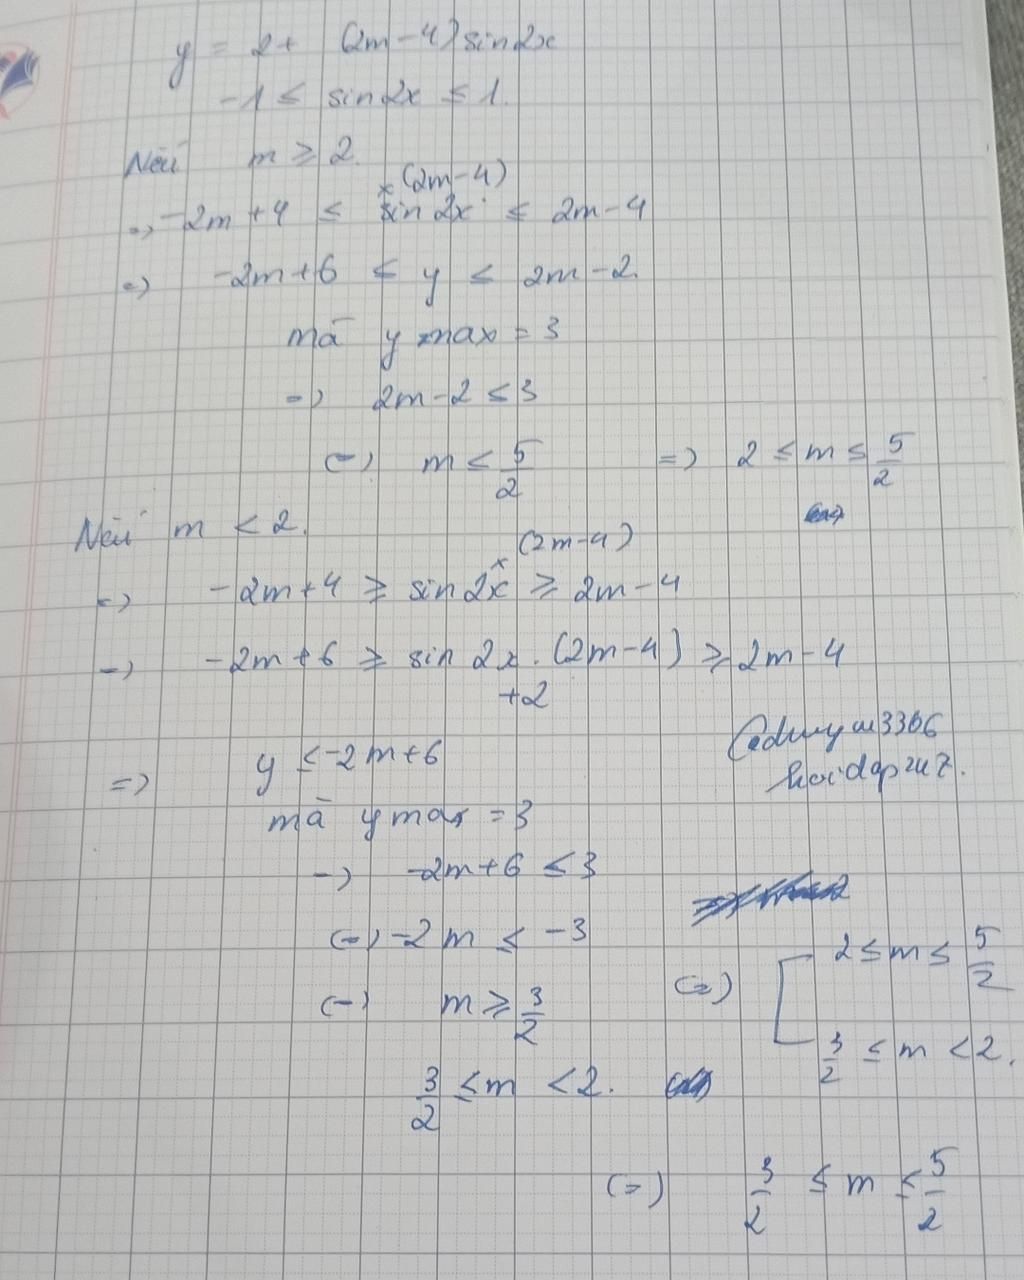 y = 2 + (2m-4) sin2x
-1 ≤ sin2x ≤ 1.
Nếu m ≥ 2
=> -2m+4 ≤ sin 2x × (2m-4) ≤ 2m-4
=> -2m+6 ≤ y ≤ 2m-2.
mà y max = 3
=> 2m-2 ≤ 3
(=) m ≤ 5/2 => 2 ≤ m ≤ 5/2
Nếu m < 2.
=> -2m+4 ≥ sin 2x × (2m-4) ≥ 2m-4
=> -2m+6 ≥ sin 2x . (2m-4) ≥ 2m-4
+2
=> y ≤ -2m+6
mà y max = 3
=> -2m+6 ≤ 3
(=) -2m ≤ -3
(=) m ≥ 3/2
3/2 ≤ m < 2.
(=) [ 2 ≤ m ≤ 5/2
3/2 ≤ m < 2.
(=) 3/2 ≤ m ≤ 5/2